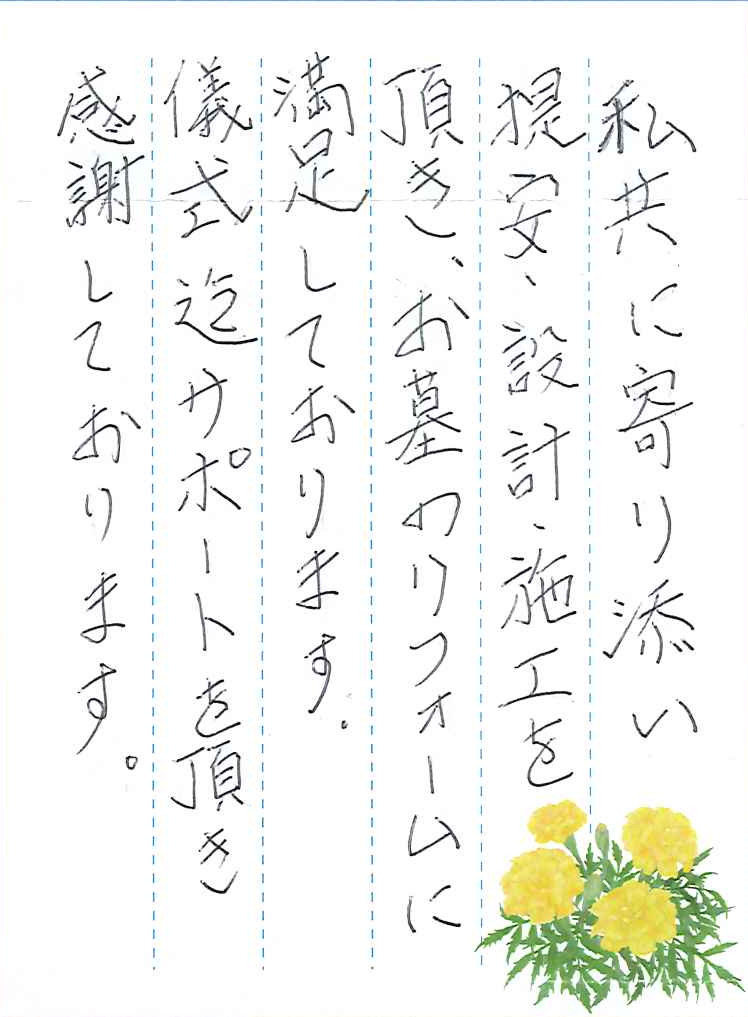 私共に寄り添い
提安、設計、施工を
頂き、お墓のリフォームに
満足しております。
儀式迄サポートを頂き
感謝しております。